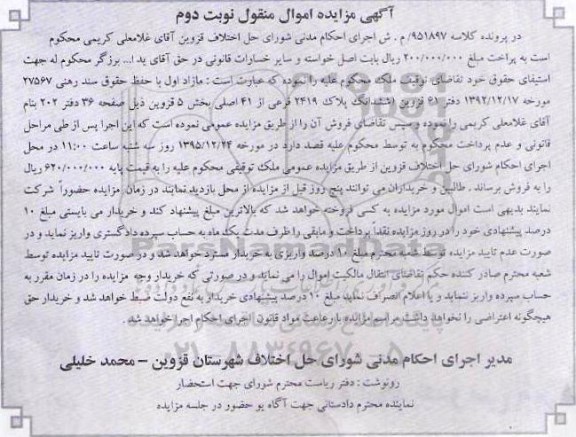 آگهی مزایده اموال منقول نوبت دوم
در پرونده کلاسه ۹۵۱۸۹۷/ م . ش اجرای احکام مدنی شورای حل اختلاف قزوین آقای غلامعلی کریمی محکوم
است به پراخت مبلغ ۲۰۰/۰۰۰/۰۰۰ ریال بابت اصل خواسته و سایر خسارات قانونی در حق آقای ید ا... برزگر محکوم له جهت
استیفای حقوق خود تقاضای توقیف ملک محکوم علیه را نموده که عبارت است : مازاد اول با حفظ حقوق سند رهنی ۲۷۵۶۷
مورخه ۱۳۹۲/۱۲/۱۷ دفتر ۶۱ قزوین اششدانگ پلاک ۲۴۱۹ فرعی از ۴۱ اصلی بخش ۵ قزوین ذیل صفحه ۳۶ دفتر ۲۰۲ بنام
آقای غلامعلی کریمی را نموده و سپس تقاضای فروش آن را از طریق مزایده عمومی نموده است که این اجرا پس از طی مراحل
قانونی و عدم پرداخت محکوم به توسط محکوم علیه قصد دارد در مورخه ۱۳۹۵/۱۲/۲۴ روز سه شنبه ساعت ۱۱:۰۰ در محل
اجرای احکام شورای حل اختلاف قزوین از طریق مزایده عمومی ملک توقیفی محکوم علیه را به قیمت پایه ۶۲۰/۰۰۰/۰۰۰ ریال
را به فروش برساند . طالبین و خریداران می توانند پنج روز قبل از مزایده از محل بازدید نمایند در زمان مزایده حضوراً شرکت
نمایند بدیهی است اموال مورد مزایده به کسی فروخته خواهد شد که بالاترین مبلغ پیشنهاد کند و خریدار می بایستی مبلغ ۱۰
درصد پیشنهادی خود را در روز مزایده نقدا پرداخت و مابقی را ظرف مدت یک ماه به حساب سپرده دادگستری واریز نماید و در
صورت عدم تایید مزایده توسط شعبه محترم مبلغ ۱۰ درصد واریزی به خریدار مسترد خواهد شد و در صورت تایید مزایده توسط
شعبه محترم صادر کننده حکم تقاضای انتقال مالکیت اموال را می نماید و در صورتی که خریدار وجه مزایده را در زمان مقرر به
حساب سپرده واریز ننماید و یا اعلام انصراف نماید مبلغ ۱۰ درصد پیشنهادی خریدار به نفع دولت ضبط خواهد شد و خریدار حق
هیچگونه اعتراضی را نخواهد داشت مراسم مزایده با رعایت مواد قانون اجرای احکام اجرا خواهد شد .
مدیر اجرای احکام مدنی شورای حل اختلاف شهرستان قزوین – محمد خلیلی
رونوشت : دفتر ریاست محترم شورای جهت استحضار
نماینده محترم دادستانی جهت آگاه یو حضور در جلسه مزایده
ParsNamadData
۰۲۱-۸۸۳۴۹۶۷۰-۵